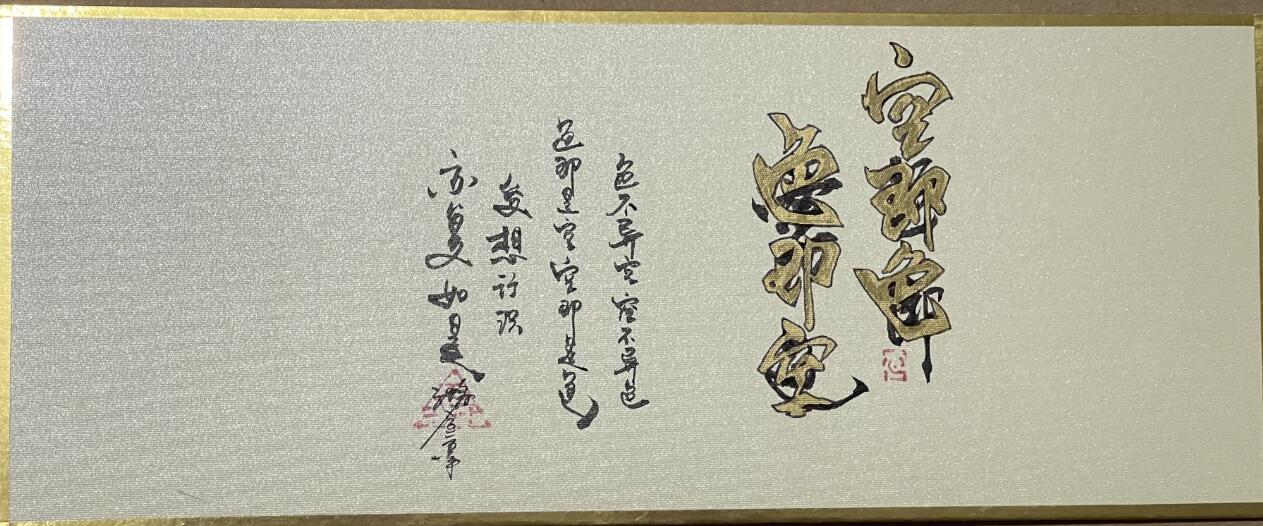 空即色
色即空
色不异空空不异色
色即是空空即是色
受想行识
亦复如是